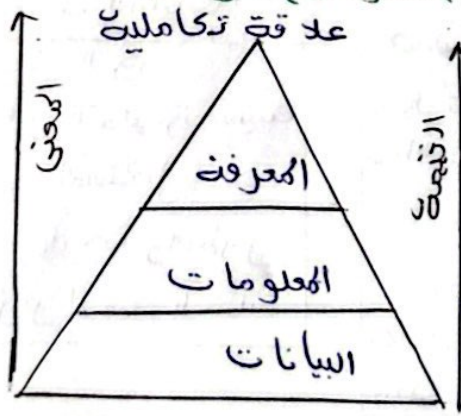 علاقة تكاملية
المعنى
القيمة
المعرفة
المعلومات
البيانات